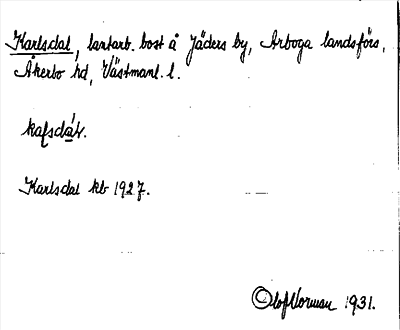 Karlsdal, lantarb. bost å Jäders by, Arboga landsförs,
Åkerbo hd, Västmanl. l.
Karlsdal kb 1927.
Olof Norman 1931.